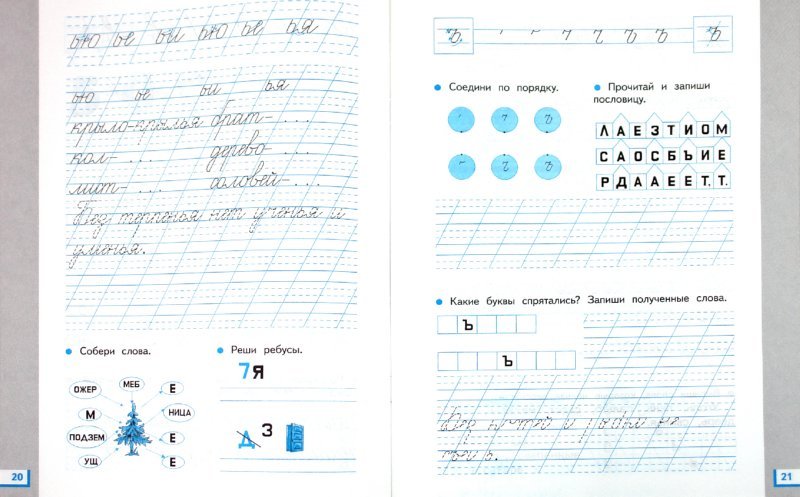 ью ье ьи ью ье ья
ью ье ьи ья
крыло-крылья брат- ...
кол- ... дерево- ...
лист- ... соловей- ...
Без терпенья нет ученья и
уменья.
Собери слова.
ОЖЕР МЕБ Е
М НИЦА
ПОДЗЕМ Е
УЩ Е
Реши ребусы.
7Я
Д З
20
ъ ъ ъ ъ ъ
Соедини по порядку.
ъ ъ ъ
Прочитай и запиши
пословицу.
ЛАЕЗТИОМ
САОСБЪИЕ
РДААЕЕТ.Т.
Какие буквы спрятались? Запиши полученные слова.
Ъ
Ъ
Без и не
21